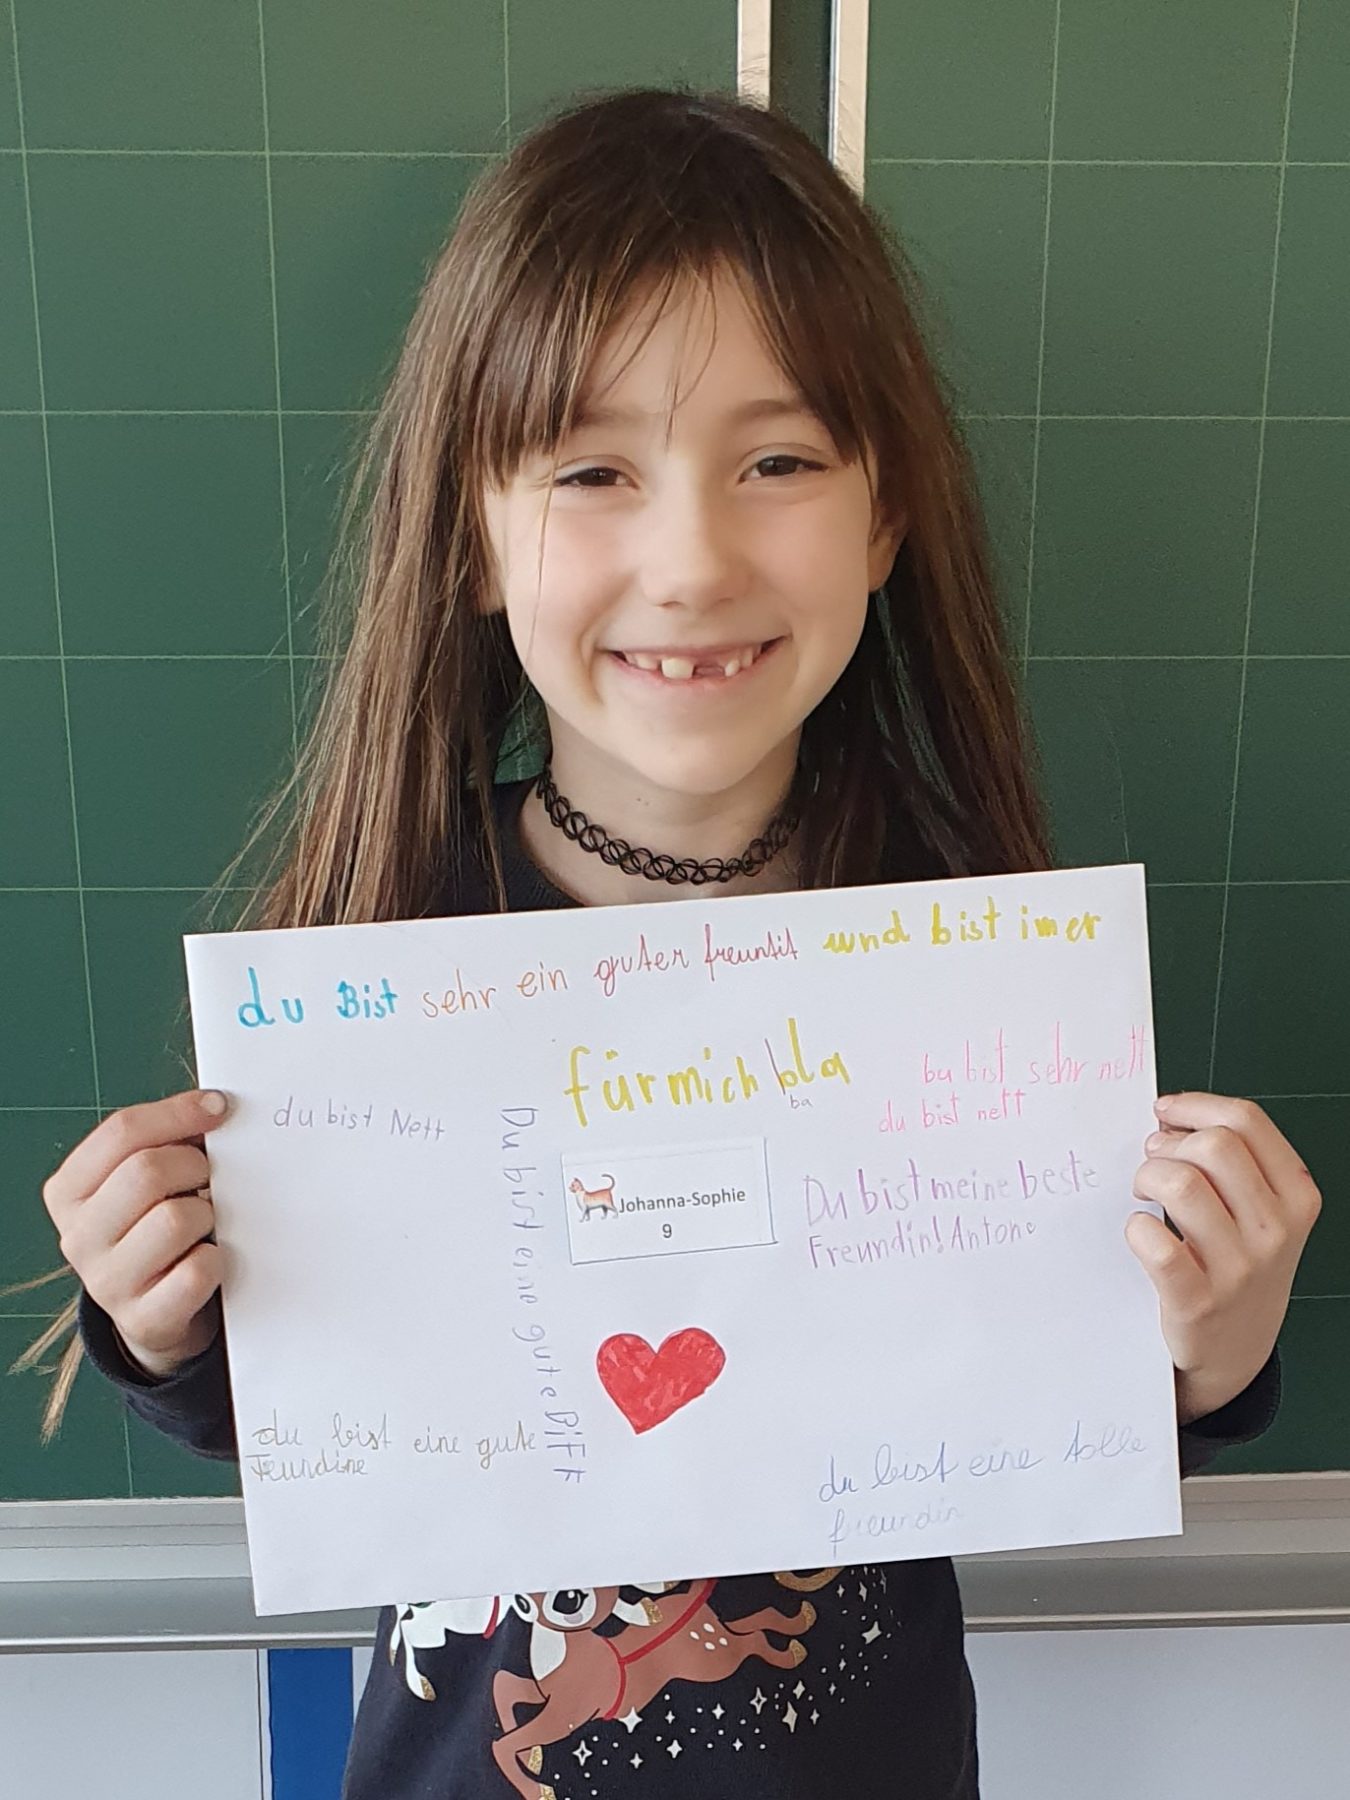 du Bist sehr ein guter freuntit und bist imer
für mich bla
ba
bu bist sehr nett
du bist nett
du bist Nett
Du bist eine gute BFF
Johanna-Sophie
9
Du bist meine beste
Freundin! Antone
du bist eine gute
Feurdine
du bist eine tolle
freundin